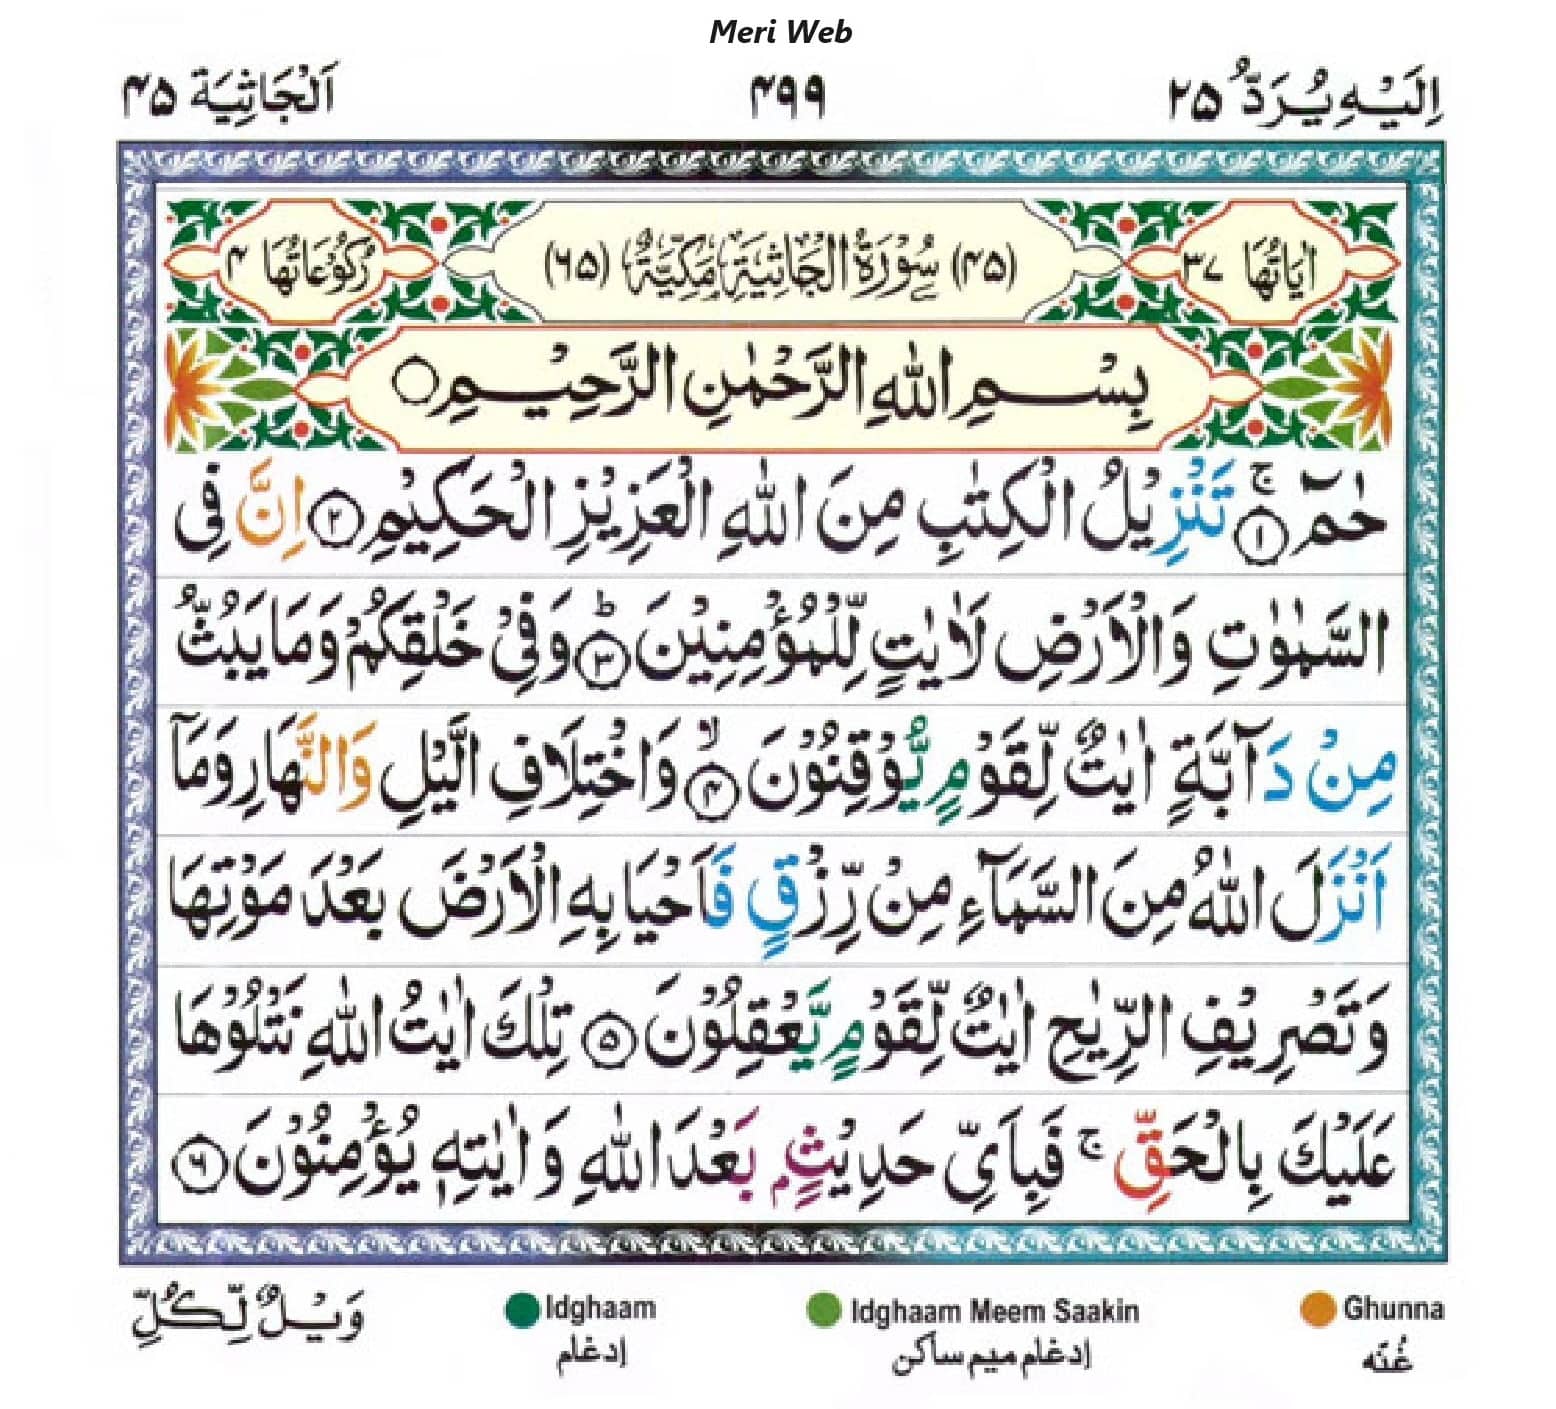 Meri Web
اِلَیْهِ یُرَدُّ ۲۵
۴۹۹
اَلْجَاثِیَة ۴۵
اٰیَاتُهَا ۳۷
(۴۵) سُوْرَةُ الْجَاثِیَةِ مَکِّیَّةٌ (۶۵)
رُکُوْعَاتُهَا ۴
بِسْمِ اللّٰهِ الرَّحْمٰنِ الرَّحِیْمِ ○
حٰمٓ ۚ ۱ تَنْزِیْلُ الْکِتٰبِ مِنَ اللّٰهِ الْعَزِیْزِ الْحَکِیْمِ ۲ اِنَّ فِی
السَّمٰوٰتِ وَالْاَرْضِ لَاٰیٰتٍ لِّلْمُؤْمِنِیْنَ ؕ ۳ وَفِیْ خَلْقِکُمْ وَمَا یَبُثُّ
مِنْ دَآبَّةٍ اٰیٰتٌ لِّقَوْمٍ یُّوْقِنُوْنَ ۙ ۴ وَاخْتِلَافِ الَّیْلِ وَالنَّهَارِ وَمَاۤ
اَنْزَلَ اللّٰهُ مِنَ السَّمَآءِ مِنْ رِّزْقٍ فَاَحْیَا بِهِ الْاَرْضَ بَعْدَ مَوْتِهَا
وَتَصْرِیْفِ الرِّیٰحِ اٰیٰتٌ لِّقَوْمٍ یَّعْقِلُوْنَ ۵ تِلْكَ اٰیٰتُ اللّٰهِ نَتْلُوْهَا
عَلَیْكَ بِالْحَقِّ ۚ فَبِاَیِّ حَدِیْثٍۭ بَعْدَ اللّٰهِ وَ اٰیٰتِهٖ یُؤْمِنُوْنَ ۶
وَیْلٌ لِّکُلِّ
Idghaam
ادغام
Idghaam Meem Saakin
ادغام میم ساکن
Ghunna
غُنّه